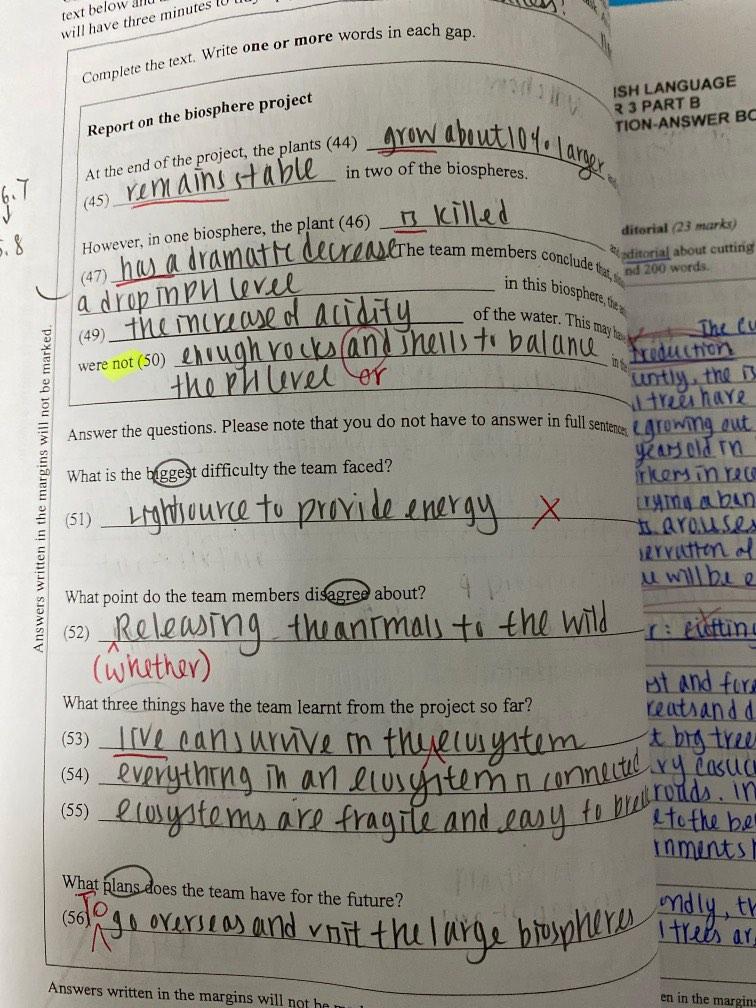 text below and
will have three minutes to
Complete the text. Write one or more words in each gap.
Report on the biosphere project
At the end of the project, the plants (44) grow about 10% larger
(45) remains stable in two of the biospheres.
However, in one biosphere, the plant (46) is killed
(47) has a dramatic decrease The team members conclude that,
a drop in PH level in this biosphere, the
(49) the increase of acidity of the water. This may
were not (50) enough rocks and shells to balance in the
the PH level or
Answer the questions. Please note that you do not have to answer in full sentences
What is the biggest difficulty the team faced?
(51) Lightsource to provide energy X
What point do the team members disagree about?
(52) Releasing the animals to the wild
(whether)
What three things have the team learnt from the project so far?
(53) live can survive in the ecusystem
(54) everything in an ecosystem is connected
(55) ecosystems are fragile and easy to break
What plans does the team have for the future?
To
(56) go overseas and visit the large biospheres
Answers written in the margins will not be
Answers written in the margins will not be marked.
6.7
5.8
ISH LANGUAGE
R 3 PART B
TION-ANSWER BO
ditorial (23 marks)
editorial about cutting
nd 200 words.
The cu
troduction
cently, the is
l trees have
e growing out
years old in
rkers in rec
rrying a ban
ts arouses
servation of
u will be e
r: cutting
st and for
reats and d
t big tree
ry casu
roads. In
e to the be
rnments
ondly, th
l trees ar
en in the margins